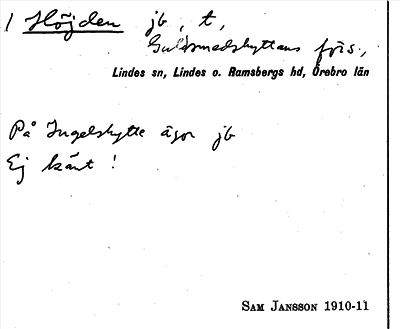 1 Höjden jb, t,
Guldsmedshyttans förs.,
Lindes sn, Lindes o. Ramsbergs hd, Örebro län
På Ingelshytte ägor jb
Ej känt !
Sam Jansson 1910-11